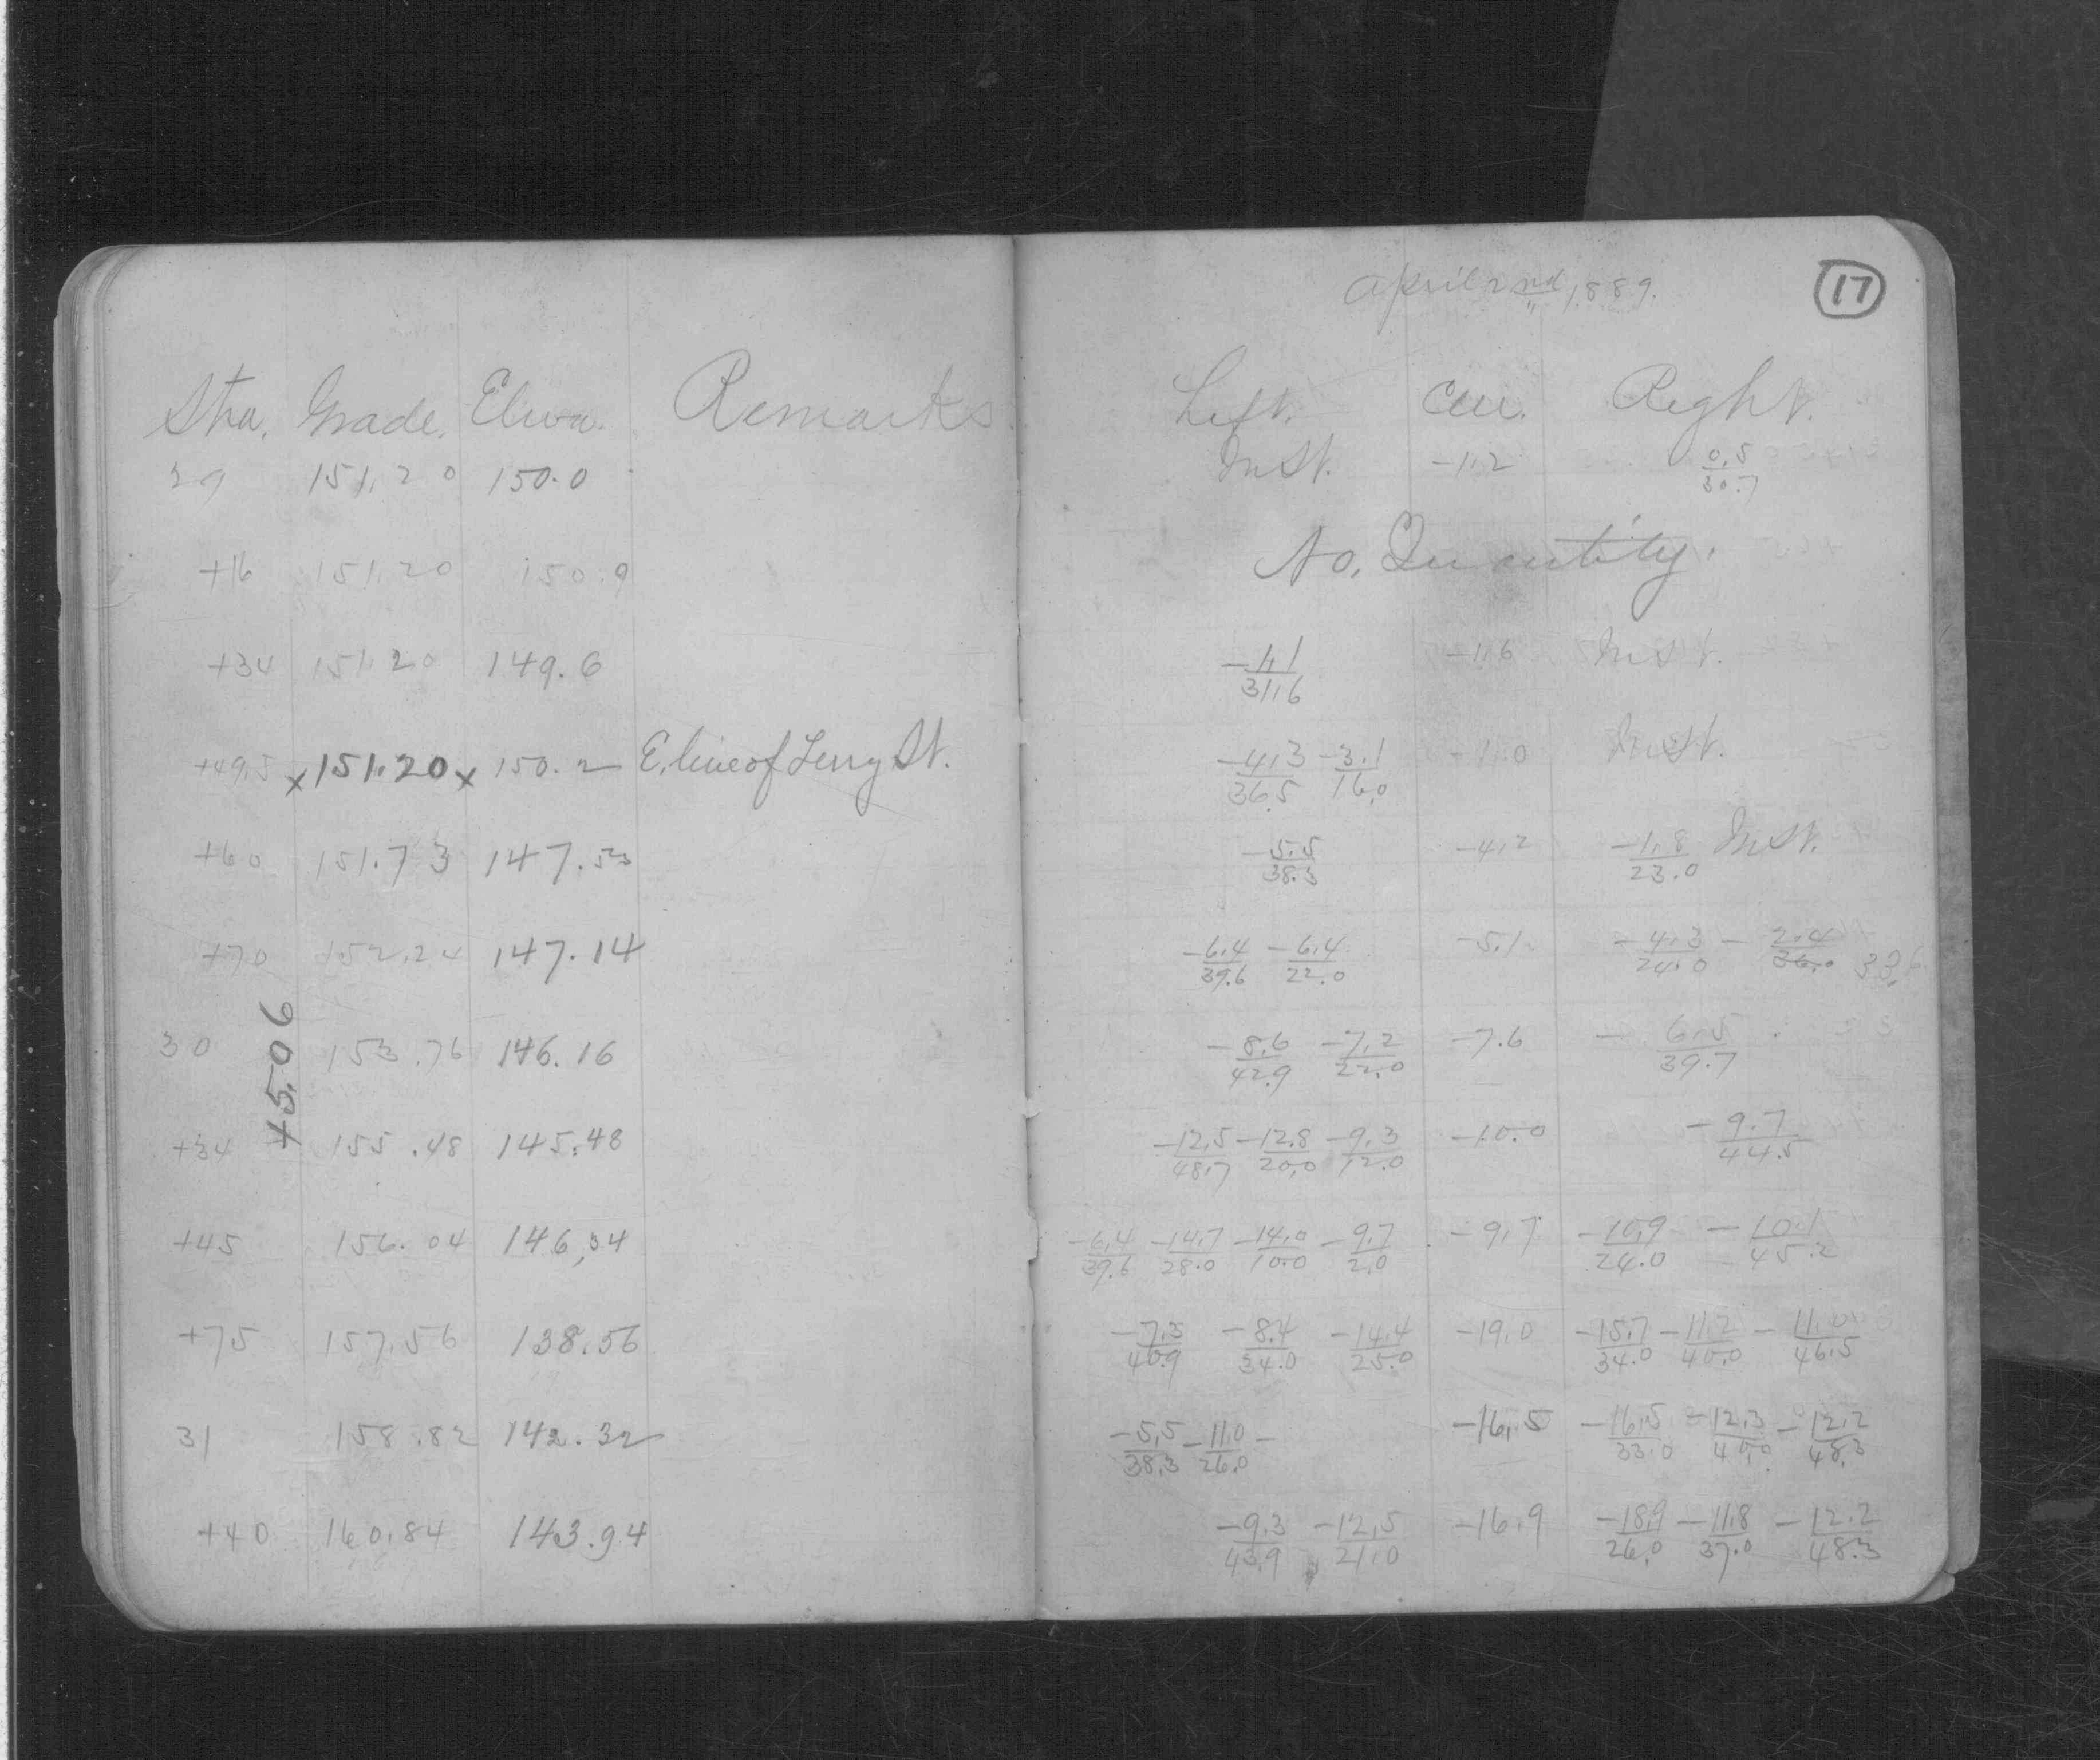 April 2nd, 1889.
17
Sta. Grade. Eleva. Remarks
Left. Cen. Right.
29 151.20 150.0
In St. -1.2 0.5/30.7
+16 151.20 150.9
No. Quantity.
+34 151.20 149.6
-1.1/31.6 -1.6 In St.
+49.5 x 151.20 x 150.2 E. line of Terry St.
-4.3/36.5 -3.1/16.0 -1.0 In St.
+60 151.73 147.53
-5.5/38.3 -4.2 -1.8/23.0 In St.
+70 152.24 147.14
-6.4/39.6 -6.4/22.0 -5.1 -4.3/24.0 - 2.4/36.0 33.6
30 153.76 146.16
-8.6/42.9 -7.2/22.0 -7.6 - 6.5/39.7
+34 155.48 145.48
-12.5/48.7 -12.8/20.0 -9.3/12.0 -10.0 -9.7/44.5
+45 156.04 146.34
-6.4/39.6 -14.7/28.0 -14.0/10.0 -9.7/2.0 -9.7 -10.9/24.0 -10.1/45.2
+75 157.56 138.56
-7.3/40.9 -8.4/34.0 -14.4/25.0 -19.0 -15.7/34.0 -11.2/40.0 -11.0/46.5
31 158.82 142.32
-5.5/38.3 -11.0/26.0 - -16.5 -16.5/33.0 -12.3/40.0 -12.2/48.3
+40 160.84 143.94
-9.3/43.9 -12.5/21.0 -16.9 -18.9/26.0 -11.8/37.0 -12.2/48.3
+5.06